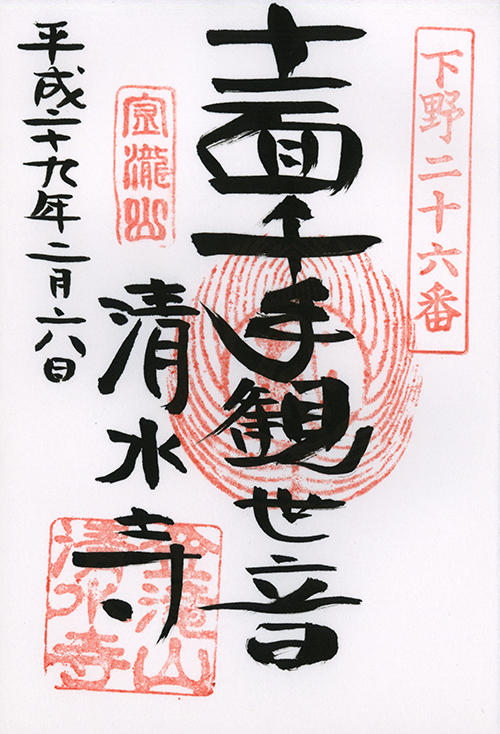 下野二十六番
十一面千手観世音
宝瀧山
清水寺
金瀧山
清水寺
平成二十九年二月六日